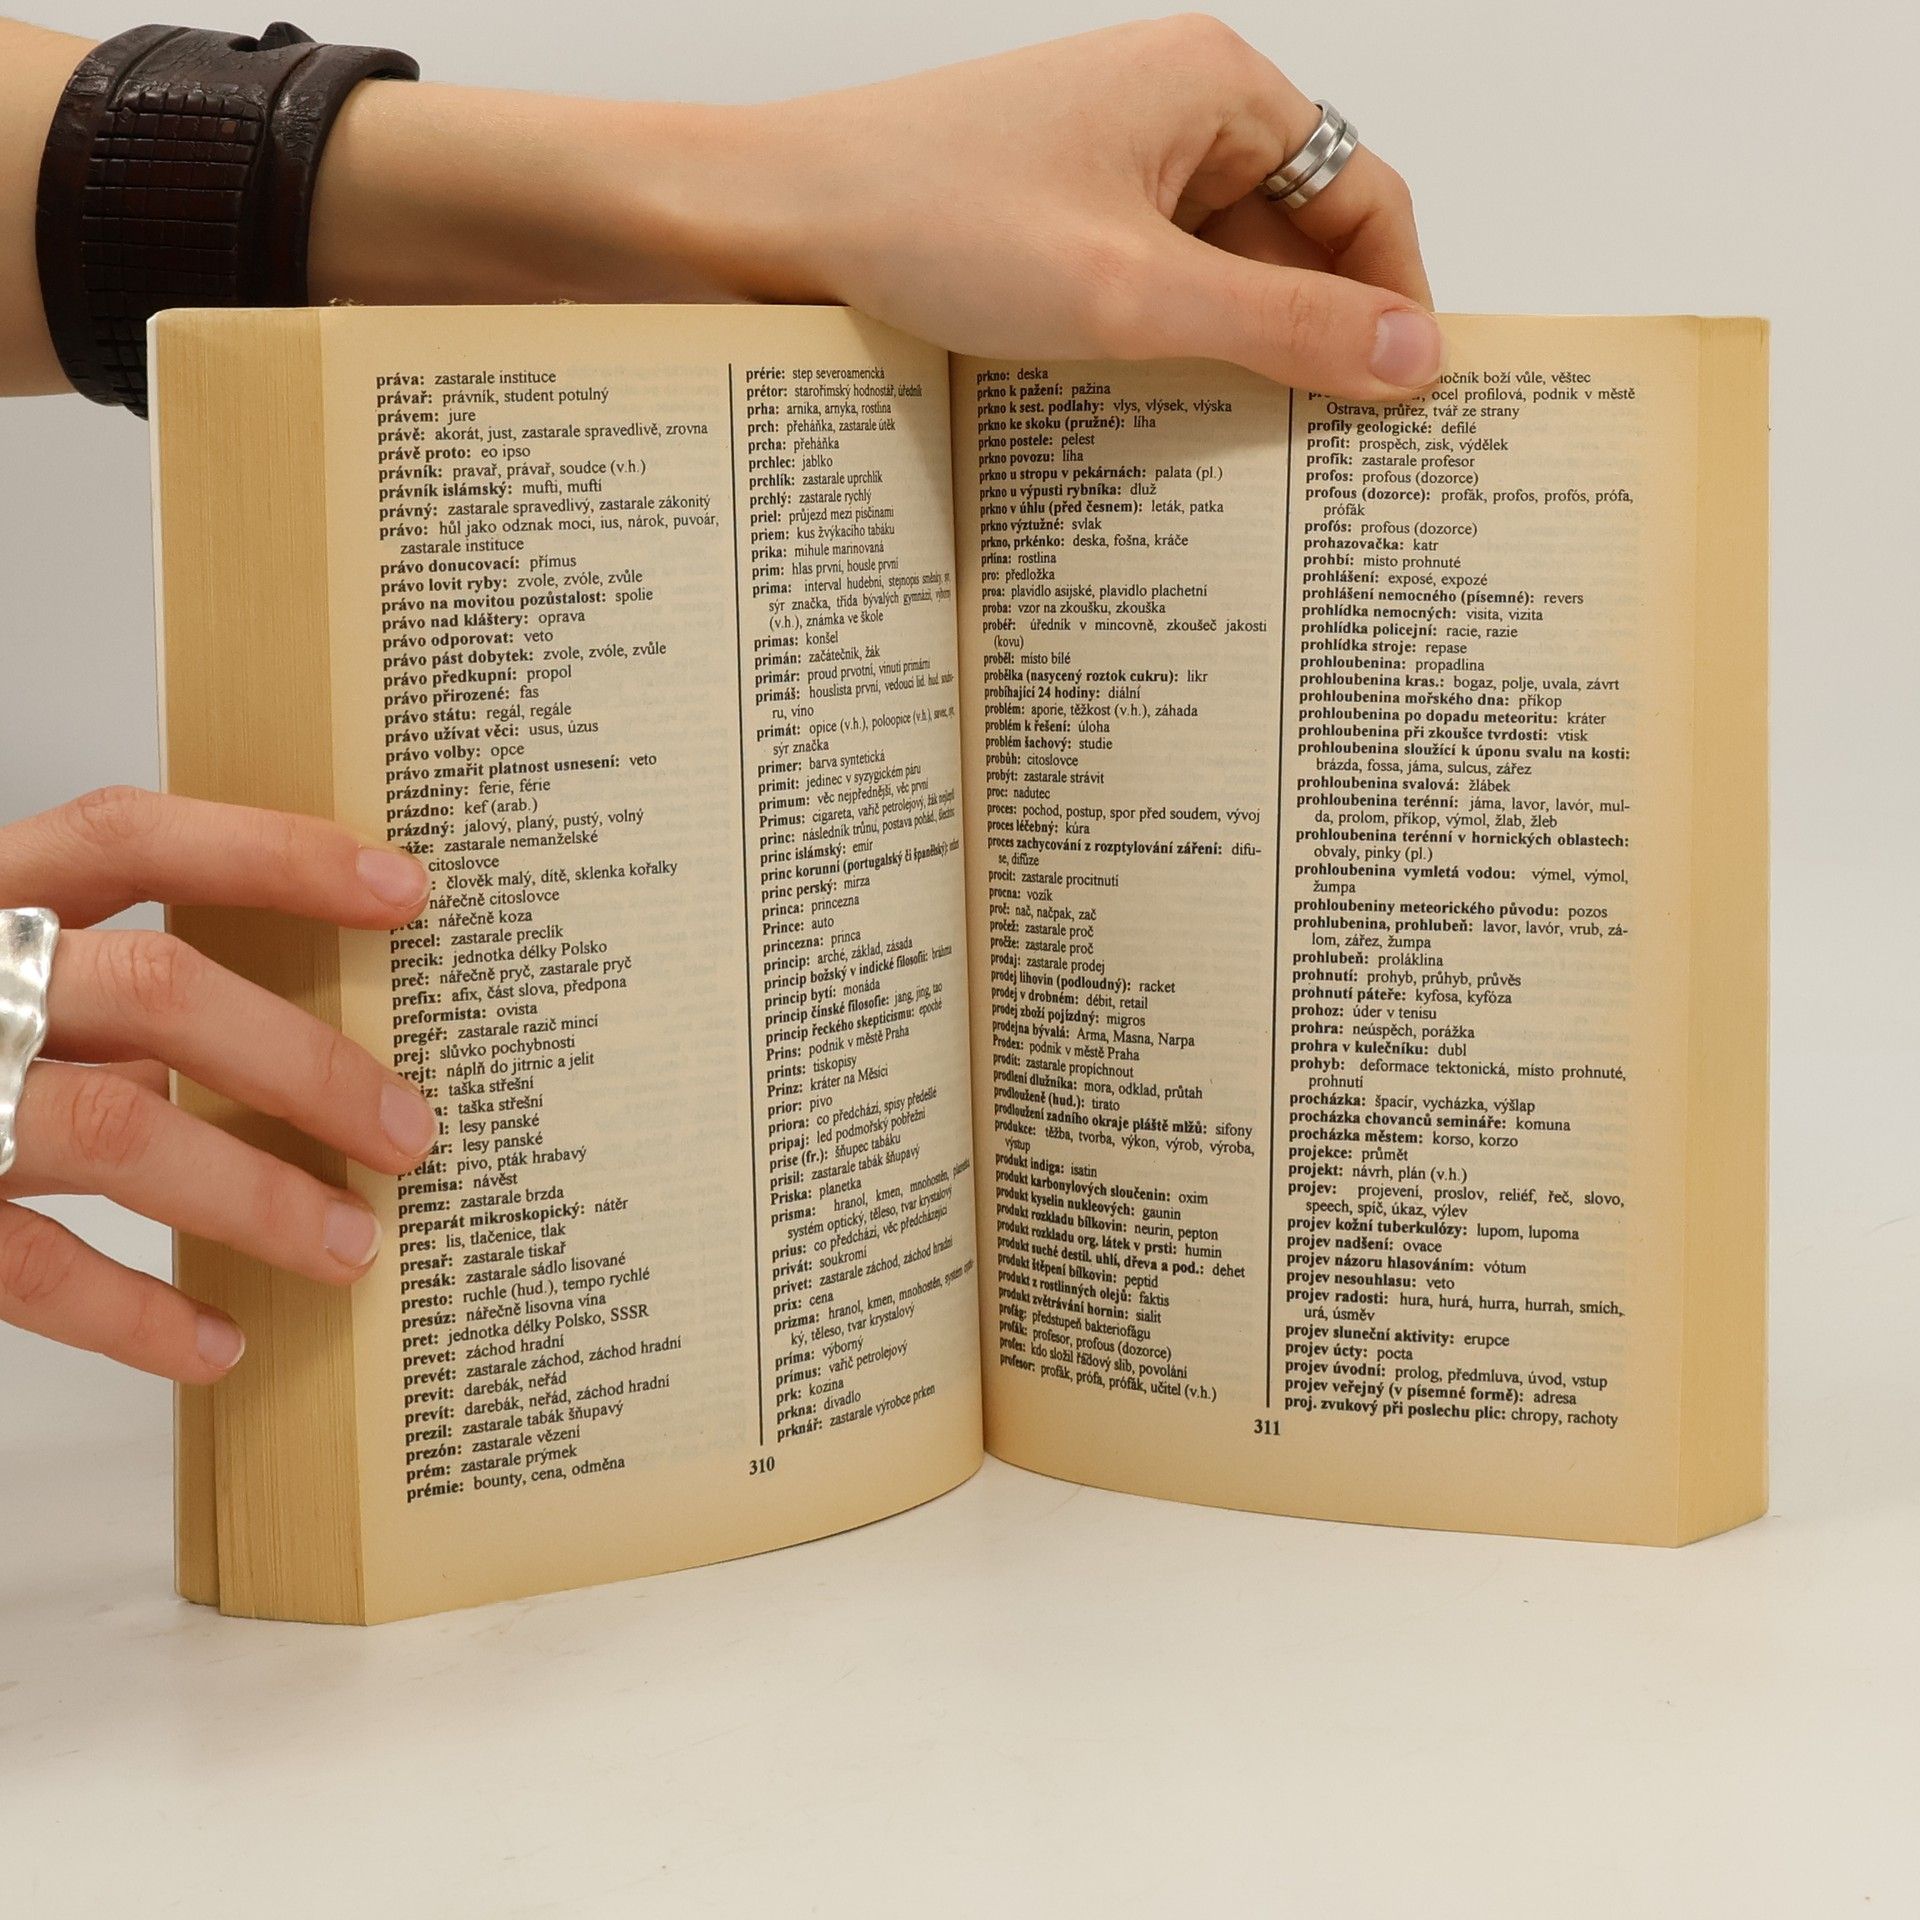 práva: zastarale instituce
právař: právník, student potulný
právem: jure
právě: akorát, just, zastarale spravedlivě, zrovna
právě proto: eo ipso
právník: pravař, právař, soudce (v.h.)
právník islámský: mufti, muftí
právný: zastarale spravedlivý, zastarale zákonitý
právo: hůl jako odznak moci, ius, nárok, puvoár,
zastarale instituce
právo donucovací: přímus
právo lovit ryby: zvole, zvóle, zvůle
právo na movitou pozůstalost: spolie
právo nad kláštery: oprava
právo odporovat: veto
právo pást dobytek: zvole, zvóle, zvůle
právo předkupní: propol
právo přirozené: fas
právo státu: regál, regále
právo užívat věci: usus, úzus
právo volby: opce
právo zmařit platnost usnesení: veto
prázdniny: ferie, férie
prázdno: kef (arab.)
prázdný: jalový, planý, pustý, volný
áže: zastarale nemanželské
citoslovce
: člověk malý, dítě, sklenka kořalky
nářečně citoslovce
prca: nářečně koza
precel: zastarale preclík
precik: jednotka délky Polsko
preč: nářečně pryč, zastarale pryč
prefix: afix, část slova, předpona
preformista: ovista
pregéř: zastarale razič mincí
prej: slůvko pochybnosti
prejt: náplň do jitrnic a jelit
iz: taška střešní
a: taška střešní
l: lesy panské
ár: lesy panské
prelát: pivo, pták hrabavý
premisa: návěst
premz: zastarale brzda
preparát mikroskopický: nátěr
pres: lis, tlačenice, tlak
presař: zastarale tiskař
presák: zastarale sádlo lisované
presto: ruchle (hud.), tempo rychlé
presúz: nářečně lisovna vína
pret: jednotka délky Polsko, SSSR
prevet: záchod hradní
prevét: zastarale záchod, záchod hradní
previt: darebák, neřád
prevít: darebák, neřád, záchod hradní
prezil: zastarale tabák šňupavý
prezón: zastarale vězení
prém: zastarale prýmek
prémie: bounty, cena, odměna
prérie: step severoamerická
prétor: starořímský hodnostář, úředník
prha: arnika, arnyka, rostlina
prch: přeháňka, zastarale útěk
prcha: přeháňka
prchlec: jablko
prchlík: zastarale uprchlík
prchlý: zastarale rychlý
priel: průjezd mezi písčinami
priem: kus žvýkacího tabáku
prika: mihule marinovaná
prim: hlas první, housle první
prima: interval hudební, stejnopis směnky,
sýr značka, třída bývalých gymnázií, výborný
(v.h.), známka ve škole
primas: konšel
primán: začátečník, žák
primár: proud prvotní, vinutí primární
primáš: houslista první, vedoucí lid. hud. soubo-
ru, víno
primát: opice (v.h.), poloopice (v.h.), savec,
sýr značka
primer: barva syntetická
primit: jedinec v syzygickém páru
primum: věc nejpřednější, věc první
Primus: cigareta, vařič petrolejový, žák nejlepší
princ: následník trůnu, postava pohád., šlechtic
princ islámský: emir
princ korunní (portugalský či španělský): infant
princ perský: mirza
princa: princezna
Prince: auto
princezna: princa
princip: arché, základ, zásada
princip božský v indické filosofii: bráhma
princip bytí: monáda
princip čínské filosofie: jang, jing, tao
princip řeckého skepticismu: epoché
Prins: podnik v městě Praha
prints: tiskopisy
Prinz: kráter na Měsíci
prior: pivo
priora: co předchází, spisy předešlé
pripaj: led podmořský pobřežní
prise (fr.): šňupec tabáku
prisil: zastarale tabák šňupavý
Priska: planetka
prisma: hranol, kmen, mnohostěn, planetka,
systém optický, těleso, tvar krystalový
prius: co předchází, věc předcházející
privát: soukromí
privet: zastarale záchod, záchod hradní
prix: cena
prizma: hranol, kmen, mnohostěn, systém optic-
ký, těleso, tvar krystalový
príma: výborný
prímus: vařič petrolejový
prk: kozina
prkna: divadlo
prknář: zastarale výrobce prken
310
prkno: deska
prkno k pažení: pažina
prkno k sest. podlahy: vlys, vlýsek, vlýska
prkno ke skoku (pružné): líha
prkno postele: pelest
prkno povozu: líha
prkno u stropu v pekárnách: palata (pl.)
prkno u výpusti rybníka: dluž
prkno v úhlu (před česnem): leták, patka
prkno výztužné: svlak
prkno, prkénko: deska, fošna, kráče
prlina: rostlina
pro: předložka
proa: plavidlo asijské, plavidlo plachetní
proba: vzor na zkoušku, zkouška
probéř: úředník v mincovně, zkoušeč jakosti
(kovu)
proběl: místo bílé
probělka (nasycený roztok cukru): likr
probíhající 24 hodiny: diální
problém: aporie, těžkost (v.h.), záhada
problém k řešení: úloha
problém šachový: studie
probůh: citoslovce
probýt: zastarale strávit
proc: nadutec
proces: pochod, postup, spor před soudem, vývoj
proces léčebný: kúra
proces zachycování z rozptylování záření: difu-
se, difúze
procit: zastarale procitnutí
procna: vozík
proč: nač, načpak, zač
ročež: zastarale proč
pročže: zastarale proč
prodaj: zastarale prodej
prodej lihovin (podloudný): racket
prodej v drobném: débit, retail
prodej zboží pojízdný: migros
prodejna bývalá: Arma, Masna, Narpa
Prodex: podnik v městě Praha
prodít: zastarale propíchnout
prodlení dlužníka: mora, odklad, průtah
prodlouženě (hud.): tirato
prodloužení zadního okraje pláště mlžů: sifony
produkce: těžba, tvorba, výkon, výrob, výroba,
výstup
produkt indiga: isatin
produkt karbonylových sloučenin: oxim
produkt kyselin nukleových: gaunin
produkt rozkladu bílkovin: neurin, pepton
produkt rozkladu org. látek v prsti: humin
produkt suché destil. uhlí, dřeva a pod.: dehet
produkt štěpení bílkovin: peptid
produkt z rostlinných olejů: faktis
produkt zvětrávání hornin: sialit
profág: předstupeň bakteriofágu
profák: profesor, profous (dozorce)
profes: kdo složil řádový slib, povolání
profesor: profák, prófa, prófák, učitel (v.h.)
ločník boží vůle, věštec
ocel profilová, podnik v městě
Ostrava, průřez, tvář ze strany
profily geologické: defilé
profit: prospěch, zisk, výdělek
profík: zastarale profesor
profos: profous (dozorce)
profous (dozorce): profák, profos, profós, prófa,
prófák
profós: profous (dozorce)
prohazovačka: katr
prohbí: místo prohnuté
prohlášení: exposé, expozé
prohlášení nemocného (písemné): revers
prohlídka nemocných: visita, vizita
prohlídka policejní: racie, razie
prohlídka stroje: repase
prohloubenina: propadlina
prohloubenina kras.: bogaz, polje, uvala, závrt
prohloubenina mořského dna: příkop
prohloubenina po dopadu meteoritu: kráter
prohloubenina při zkoušce tvrdosti: vtisk
prohloubenina sloužící k úponu svalu na kosti:
brázda, fossa, jáma, sulcus, zářez
prohloubenina svalová: žlábek
prohloubenina terénní: jáma, lavor, lavór, mul-
da, prolom, příkop, výmol, žlab, žleb
prohloubenina terénní v hornických oblastech:
obvaly, pinky (pl.)
prohloubenina vymletá vodou: výmel, výmol,
žumpa
prohloubeniny meteorického původu: pozos
prohlubenina, prohlubeň: lavor, lavór, vrub, zá-
lom, zářez, žumpa
prohlubeň: proláklina
prohnutí: prohyb, průhyb, průvěs
prohnutí páteře: kyfosa, kyfóza
prohoz: úder v tenisu
prohra: neúspěch, porážka
prohra v kulečníku: dubl
prohyb: deformace tektonická, místo prohnuté,
prohnutí
procházka: špacír, vycházka, výšlap
procházka chovanců semináře: komuna
procházka městem: korso, korzo
projekce: průmět
projekt: návrh, plán (v.h.)
projev: projevení, proslov, reliéf, řeč, slovo,
speech, spíč, úkaz, výlev
projev kožní tuberkulózy: lupom, lupoma
projev nadšení: ovace
projev názoru hlasováním: vótum
projev nesouhlasu: veto
projev radosti: hura, hurá, hurra, hurrah, smích,
urá, úsměv
projev sluneční aktivity: erupce
projev úcty: pocta
projev úvodní: prolog, předmluva, úvod, vstup
projev veřejný (v písemné formě): adresa
proj. zvukový při poslechu plic: chropy, rachoty
311